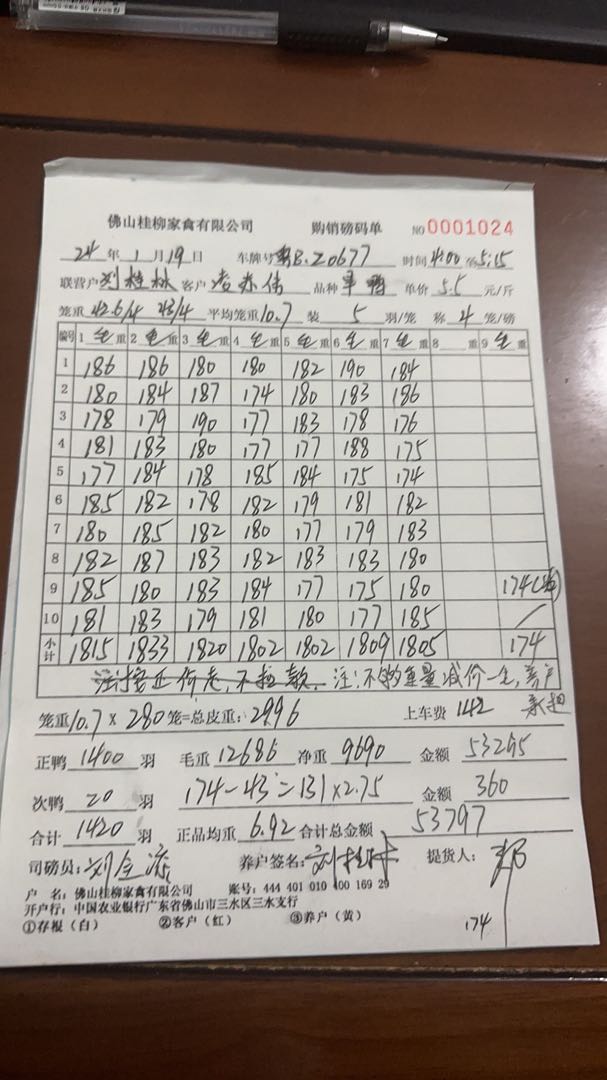 佛山桂柳家禽有限公司 购销磅码单 NO 0001024
24年1月19日 车牌号粤B.Z0677 时间4:00至5:15
联营户刘桂林 客户 品种 单鸭 单价5.5元/斤
笼重42.6/4 43/4 平均笼重10.7 装5羽/笼 称4笼/磅
编号 1毛重 2毛重 3毛重 4毛重 5毛重 6毛重 7毛重 8 重 9毛重
1 186 186 180 180 182 190 184
2 180 184 187 174 180 183 186
3 178 179 190 177 183 178 176
4 181 183 180 177 177 188 175
5 177 184 178 185 184 175 174
6 185 182 178 182 179 181 182
7 180 185 182 180 177 179 183
8 182 187 183 182 183 183 180
9 185 180 183 184 177 175 180 174
10 181 183 179 181 180 177 185 /
小计 1815 1833 1820 1802 1802 1809 1805 174
注:不够重量减价一毛,养户
承担
笼重10.7×280笼=总皮重:2996 上车费142
正鸭1400羽 毛重12686 净重9690 金额53295
次鸭20羽 174-43=131×2.75 金额360
合计1420羽 正品均重6.92 合计总金额53797
司磅员: 养户签名:刘桂林 提货人:
户 名:佛山桂柳家禽有限公司 账号:444 401 010 400 169 29
开户行:中国农业银行广东省佛山市三水区三水支行
①存根(白) ②客户(红) ③养户(黄)
174